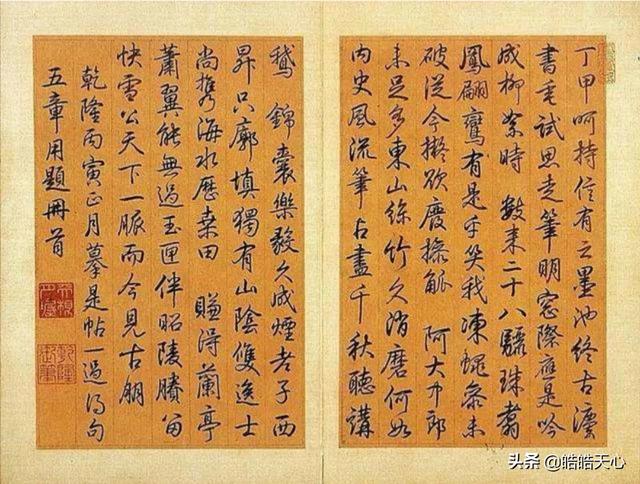 丁甲呵持信有之墨池終古
書垂試思走筆明窗際應是吟
成柳絮時 數來二十八驪珠翥
鳳翩鸞有是乎笑我凍蠅參未
破從今擬欲廢操觚 阿大中郎
未足多東山絲竹久消磨何如
內史風流筆占盡千秋聽講
鵝 錦囊樂毅久成煙老子西
昇只廓填獨有山陰雙逸士
尚携海水歷桑田 賺得蘭亭
蕭翼能無過玉匣伴昭陵賸留
快雪公天下一脈而今見古朋
乾隆丙寅正月摹是帖一過得句
五章用題冊首
头条 @皓皓天心